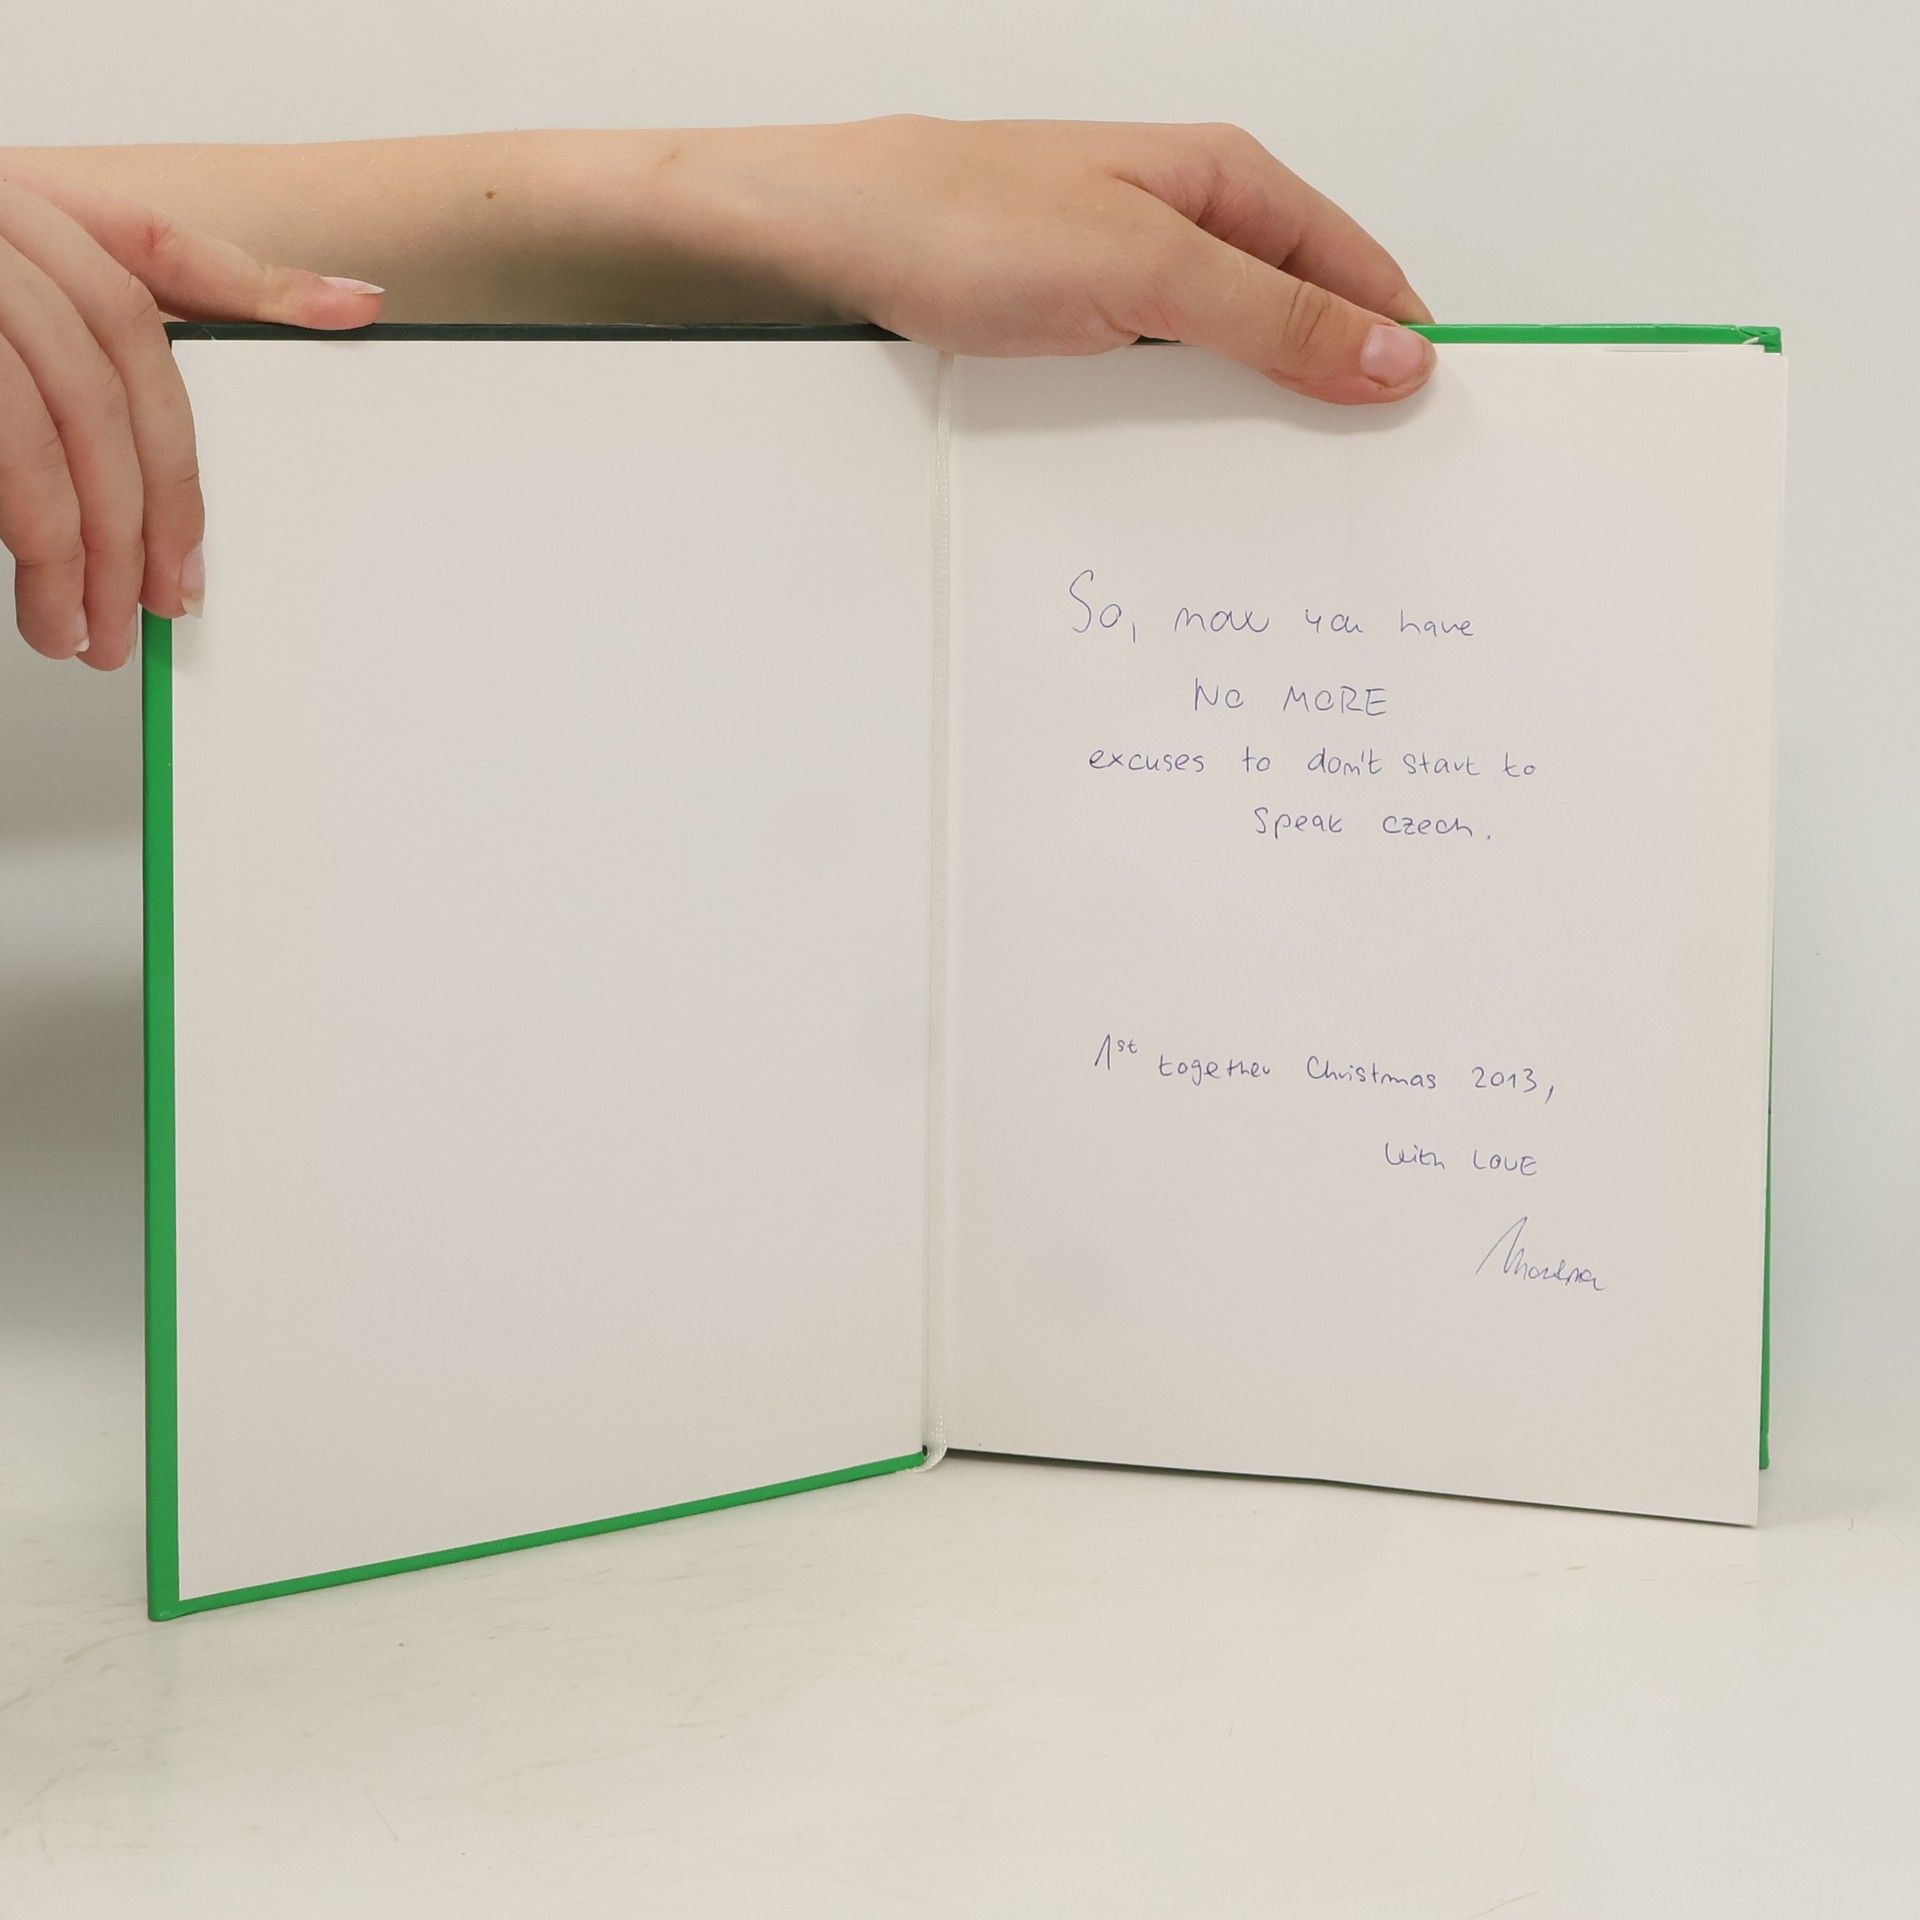 So, now you have
NO MORE
excuses to don't start to
speak czech.
1st together Christmas 2013,
With LOVE